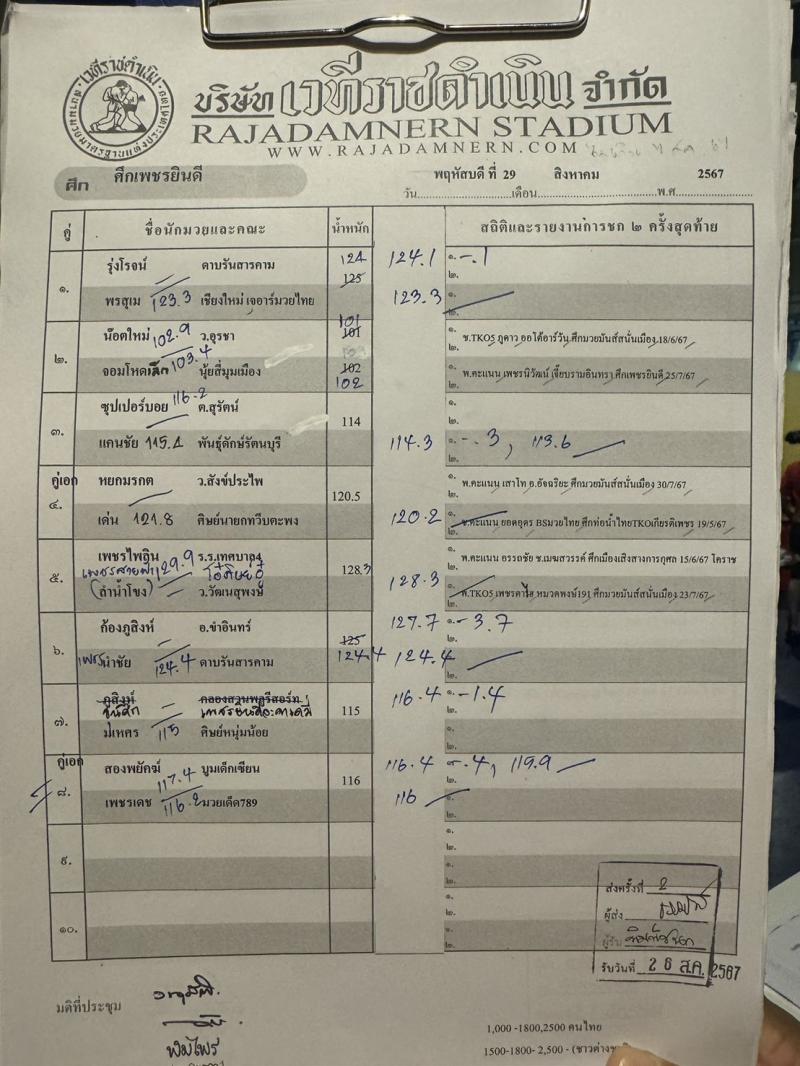 เวทีราชดำเนิน
บริษัท เวทีราชดำเนิน จำกัด
RAJADAMNERN STADIUM
WWW.RAJADAMNERN.COM
ศึก ศึกเพชรยินดี
พฤหัสบดี ที่ 29 สิงหาคม 2567
วัน เดือน พ.ศ
คู่ ชื่อนักมวยและคณะ น้ำหนัก สถิติและรายงานการชก ๒ ครั้งสุดท้าย
๑.
รุ่งโรจน์ ดาบรันสารคาม 124 124.1 ๑. -.1
125 ๒.
พรสุเม 123.3 เชียงใหม่ เจอาร์มวยไทย 123.3 ๑.
๒.
๒.
น๊อตใหม่ 102.9 ว.อุรชา 101 101 ๑. ๒. ช.TKO5 ภูดาว ออโต้อาร์วัน ศึกมวยมันส์สนั่นเมือง 18/6/67
จอมโหดเล็ก 103.4 นุ้ยสี่มุมเมือง 102 102 ๑. ๒. พ.คะแนน เพชรนิวัฒน์ เจี๊ยบรามอินทรา ศึกเพชรยินดี 25/7/67
๓.
ซุปเปอร์บอย 116.2 ต.สุรัตน์ 114 ๑.
๒.
แคนชัย 115.1 พันธุ์ดักษ์รัตนบุรี 114.3 ๑. -.3, 113.6
๒.
คู่เอก ๔.
หยกมรกต ว.สังข์ประไพ 120.5 ๑. ๒. พ.คะแนน เสาโท อ.อัจฉริยะ ศึกมวยมันส์สนั่นเมือง 30/7/67
เด่น 121.8 ศิษย์นายกทวีบตะพง 120.2 ๑. ๒. ช.คะแนน ยอดอุดร BSมวยไทย ศึกท่อน้ำไทยTKOเกียรติเพชร 19/5/67
๕.
เพชรไพลิน 129.9 ร.ร.เทศบาล4 128.3 ๑. ๒. พ.คะแนน อรรถชัย ช.เมฆสวรรค์ ศึกเมืองเสิงสางการกุศล 15/6/67 โคราช
เพชรสายฟ้า
(ลำน้ำโขง) ว.วัฒนสุพงษ์ 128.3 ๑. ๒. พ.TKO5 เพชรดาโต หมวดพงษ์191 ศึกมวยมันส์สนั่นเมือง 23/7/67
๖.
ก้องภูสิงห์ อ.ขำอินทร์ 125 127.7 ๑. -3.7
๒.
เพชรนำชัย 124.4 ดาบรันสารคาม 124.4 124.4 ๑.
๒.
๗.
ภูสิงห์ คลองสวนพลูรีสอร์ท 115 116.4 ๑. -1.4
๒.
มเหศร 115 ศิษย์หนุ่มน้อย ๑.
๒.
คู่เอก ๘.
สองพยัคฆ์ 117.4 บูมเด็กเซียน 116 116.4 ๑. -.4, 115.9
๒.
เพชรเดช 116.2 มวยเด็ด789 116 ๑.
๒.
๙. ๑.
๒.
๑.
๒.
๑๐. ๑.
๒.
๑.
๒.
ส่งครั้งที่ 2
ผู้ส่ง
ผู้รับ
รับวันที่ 26 ส.ค. 2567
มติที่ประชุม
พิมไพร
1,000 -1800,2500 คนไทย
1500-1800- 2,500 -